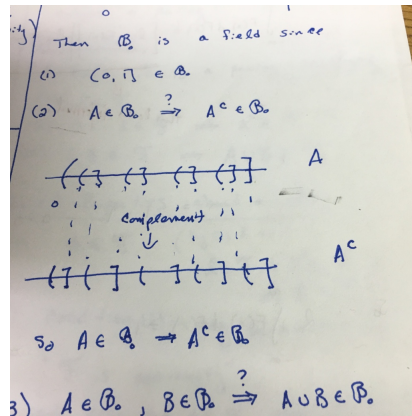 0 1
Then B₀ is a field since
(1) (0,1] ∈ B₀
(2) A ∈ B₀ ?⟹ Aᶜ ∈ B₀
A
0
complement
Aᶜ
So A ∈ B₀ → Aᶜ ∈ B₀
3) A ∈ B₀, B ∈ B₀ ?⟹ A ∪ B ∈ B₀